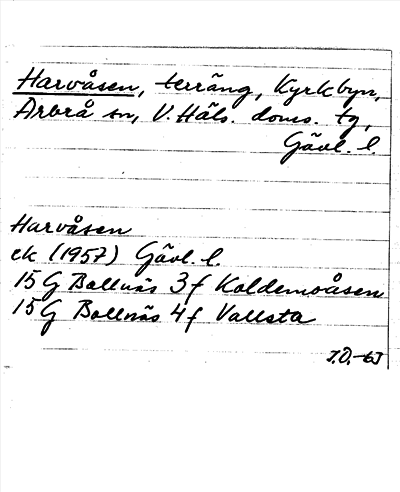 Harvåsen, terräng, Kyrkbyn,
Arbrå sn, V. Häls. doms. tg,
Gävl. l.
Harvåsen
ek (1957) Gävl. l.
15G Bollnäs 3f Koldemoåsen
15G Bollnäs 4f Vallsta
I.O.-63